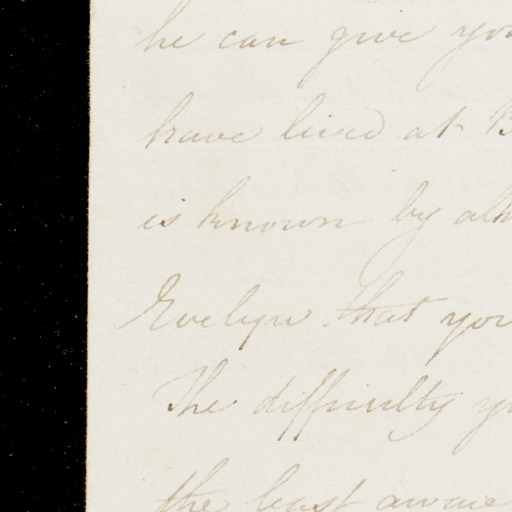 he can give you
have lived at B
is known by alm
Evelyn that you
The difficulty y
the least aware